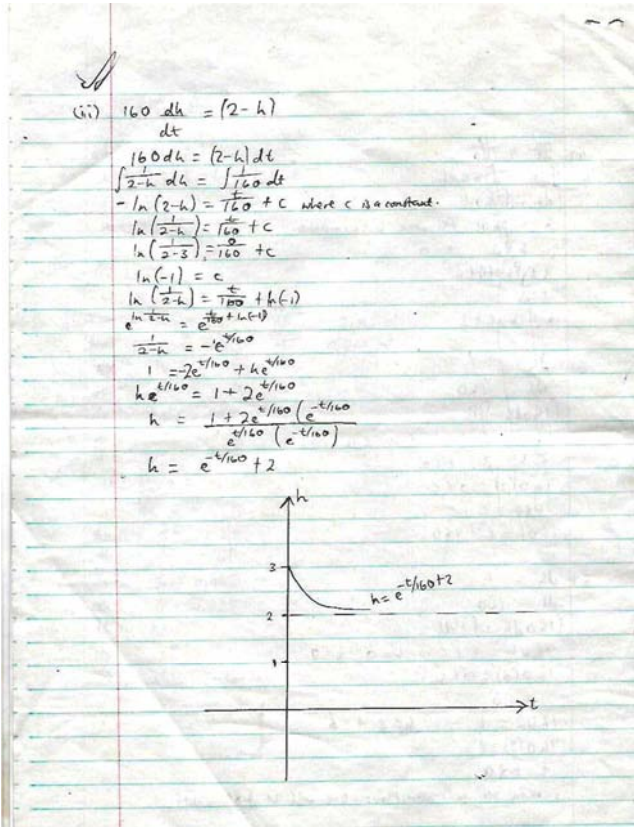 (iii) 160 dh/dt = (2-h)
160 dh = (2-h) dt
∫ 1/(2-h) dh = ∫ 1/160 dt
- ln (2-h) = t/160 + c where c is a constant.
ln (1/(2-h)) = t/160 + c
ln (1/(2-3)) = 0/160 + c
ln(-1) = c
ln (1/(2-h)) = t/160 + ln(-1)
e^(ln 1/(2-h)) = e^(t/160 + ln(-1))
1/(2-h) = -e^(t/160)
1 = -2e^(t/160) + he^(t/160)
he^(t/160) = 1 + 2e^(t/160)
h = 1 + 2e^(t/160) (e^(-t/160) / e^(t/160) (e^(-t/160))
h = e^(-t/160) + 2
h
3
h = e^(-t/160) + 2
2
1
t